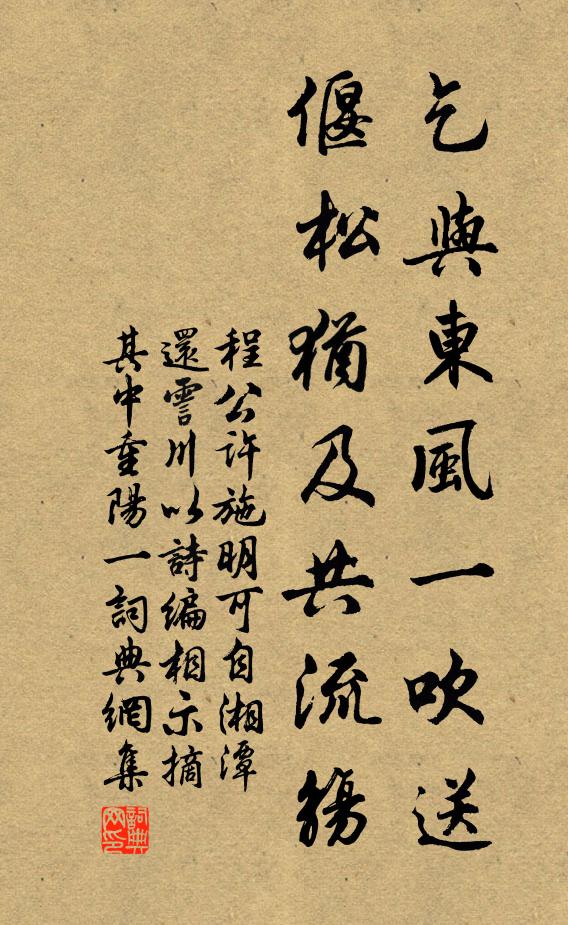 乞與東風一吹送
偃松猶及共流觴
程公許施明可自湘潭
還霅川以詩編相示摘
其中重陽一詞典網集
詞典网印